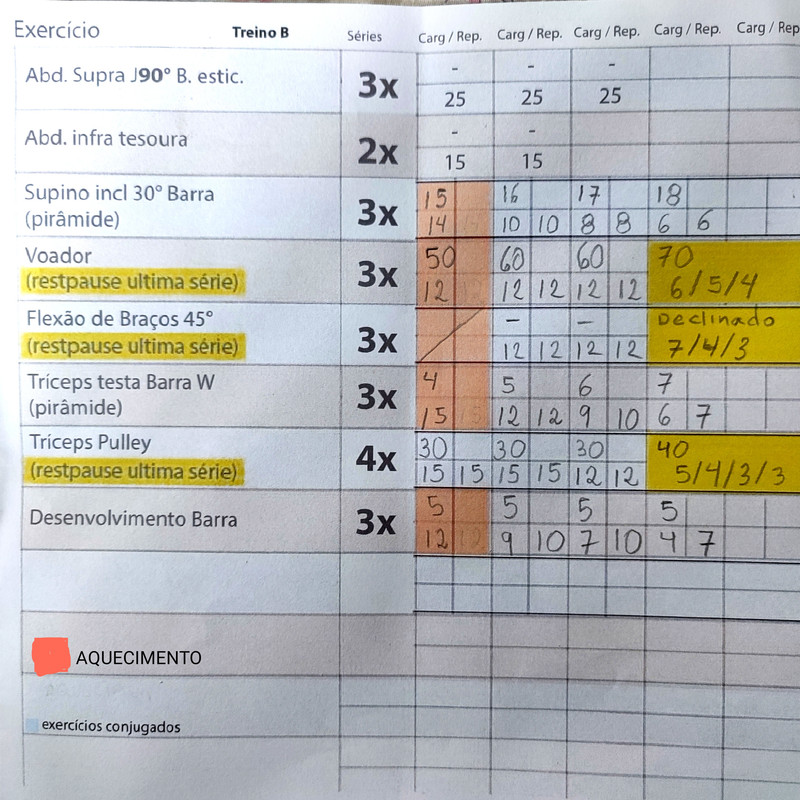 Exercício Treino B Séries Carg / Rep. Carg / Rep. Carg / Rep. Carg / Rep. Carg / Rep
Abd. Supra J90° B. estic. 3x - - -
25 25 25
Abd. infra tesoura 2x - -
15 15
Supino incl 30° Barra 3x 15 16 17 18
(pirâmide) 14 10 10 8 8 6 6
Voador 3x 50 60 60 70
(restpause ultima série) 12 12 12 12 12 6/5/4
Flexão de Braços 45° 3x - - Declinado
(restpause ultima série) 12 12 12 12 7/4/3
Tríceps testa Barra W 3x 4 5 6 7
(pirâmide) 15 15 12 12 9 10 6 7
Tríceps Pulley 4x 30 30 30 40
(restpause ultima série) 15 15 15 15 12 12 5/4/3/3
Desenvolvimento Barra 3x 5 5 5 5
12 12 9 10 7 10 4 7
AQUECIMENTO
exercícios conjugados